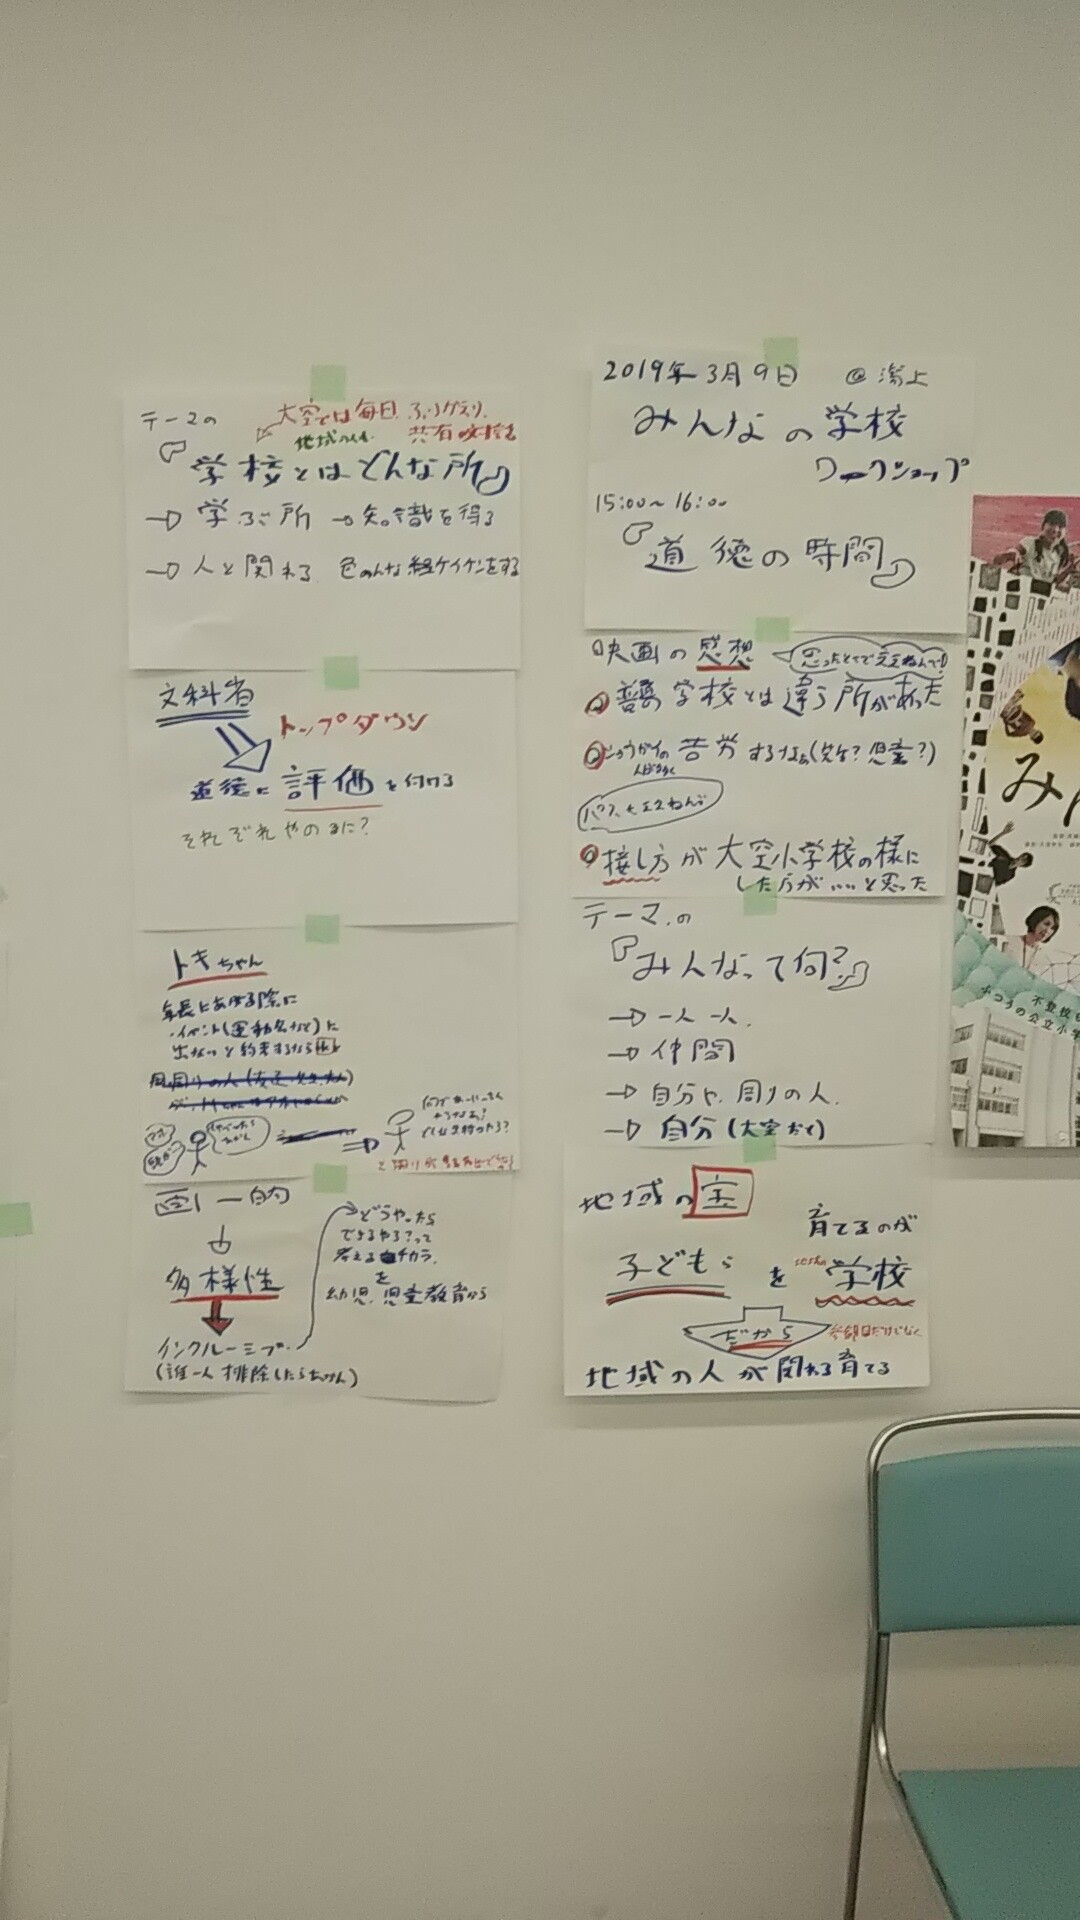 2019年3月9日 @潟上
みんなの学校
ワークショップ
15:00〜16:00
『道徳の時間』
映画の感想
学校とは違う所があった
の苦労するなぁ(先生?児童?)
接し方が大空小学校の様に
した方が‥‥と思った
テーマの
『みんなって何?』
→一人一人.
→仲間
→自分や.周りの人.
→自分(大空では)
地域の宝
育てるのが
子どもらを学校
だから
参観日だけじゃなく
地域の人が関わる育てる
テーマの
大空では毎日ふりかえり.
地域の人も
共有
『学校とはどんな所』
→学ぶ所→知識を得る
→人と関わる 色んな経ケイケンをする
文科省
トップダウン
道徳に評価を付ける
それぞれやのに?
トキちゃん
年長にあがる際に
・イベント(運動会など)に
出ないと約束するなら
画一的
多様性
インクルーシブ
(誰一人排除したらあかん)
どうやったら
できるやろ?って
考えるチカラ
を
幼児.児童教育から
みん
不登校も
ふつうの公立小学